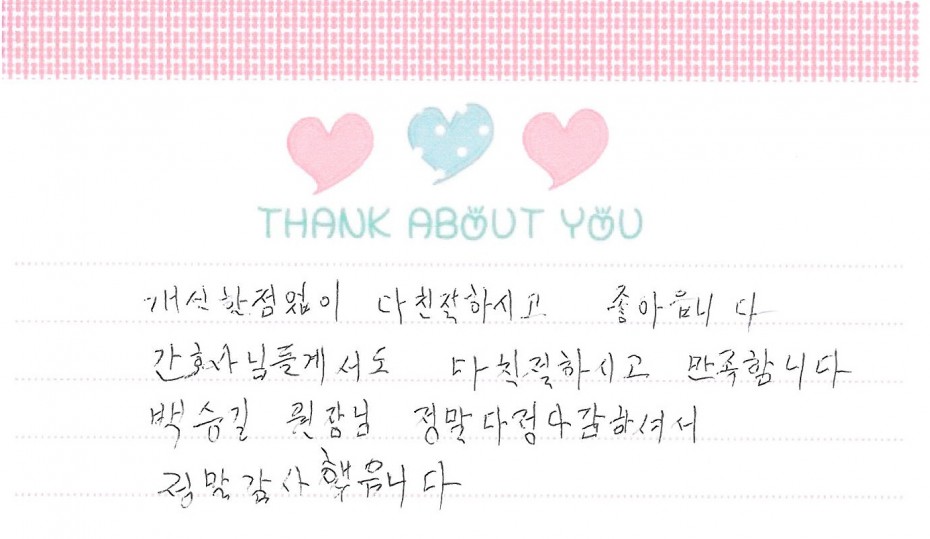 THANK ABOUT YOU
개선할점없이 다친절하시고 좋아읍니다
간호사님들게서도 다친절하시고 만족합니다
백승길 원장님 정말다정다감하셔서
정말감사했읍니다